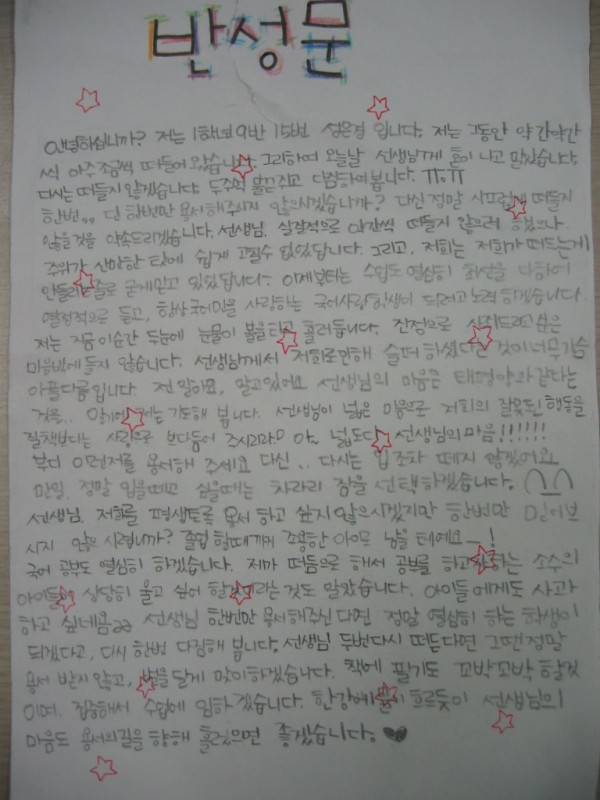 반성문
안녕하십니까? 저는 1학년 9반 15번 성은경 입니다. 저는 그동안 약간약간
씩 아주조금씩 떠들어왔습니다. 그리하여 오늘날 선생님께 틀이 나고 말았습니다.
다시는 떠들지 않겠습니다. 두주먹 불끈쥐고 다짐하여봅니다. ㅠ.ㅠ
한번,, 단 한번만 용서해주시지 않으시겠습니까? 다신 정말 시끄럽게 떠들지
않을것을 약속드리겠습니다. 선생님. 실질적으로 야간씩 떠들지 않으려 하였으나.
주위가 산만한 탓에 쉽게 고칠수 없었답니다. 그리고, 저희는 저희가 떠드는게
안들리 줄로 굳게믿고 있었답니다. 이제부터는 수업도 열심히 최선을 다하여
열정적으로 듣고, 항상 국어만을 사랑하는 국어사랑 학생이 되려고 노력하겠습니다.
저는 지금 이순간 두눈에 눈물이 볼을타고 흘러듭니다. 진정으로 사죄드리고싶은
마음밖에 들지 않습니다. 선생님께서 저희로인해 슬퍼하셨다는 것이 너무가슴
아플다름입니다. 전 알아요, 알고있어요 선생님의 마음은 태평양과같다는
것을.. 기도해 봅니다. 선생님이 넓은 마음으로 저희의 잘못된 행동을
질책보다는 사랑으로 보다듬어 주시리라고 아, 넓도다 선생님의마음!!!!!!
부디 이런저를 용서해 주세요 다신.. 다시는 입조차 떼지 않겠어요
만일, 정말 입을떼고 싶을때는 차라리 잠을 선택하겠습니다. ∩∩
선생님. 저희를 평생토록 용서 하고 싶지 않으시겠지만 한번만 믿어보
시지 않으시렵니까? 졸업 할때까지 조용한 아이로 남을 테예요 ~!
국어 공부도 열심히 하겠습니다. 제가 떠듬으로 해서 공부를 하고 하는 소수의
아이들이 상당히 울고 싶어 할 것이라는 것도 알았습니다. 아이들에게도 사과
하고 싶네욤 선생님 한번만 용서해주신 다면 정말 열심히 하는 학생이
되겠다고, 다시 한번 다짐해 봅니다. 선생님 두번다시 떠든다면 그땐정말
용서 받지 않고, 벌을 달게 맞이하겠습니다. 책에 필기도 꼬박꼬박 하겠
이며. 집중해서 수업에 임하겠습니다. 한강에 물이 흐르듯이 선생님의
마음도 용서의길을 향해 흘렀으면 좋겠습니다. ♥